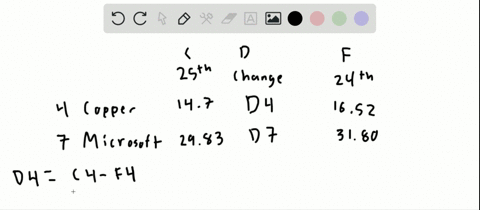 C D F
25th Change 24th
4 Copper 14.7 D4 16.52
7 Microsoft 29.83 D7 31.80
D4 = C4 - F4